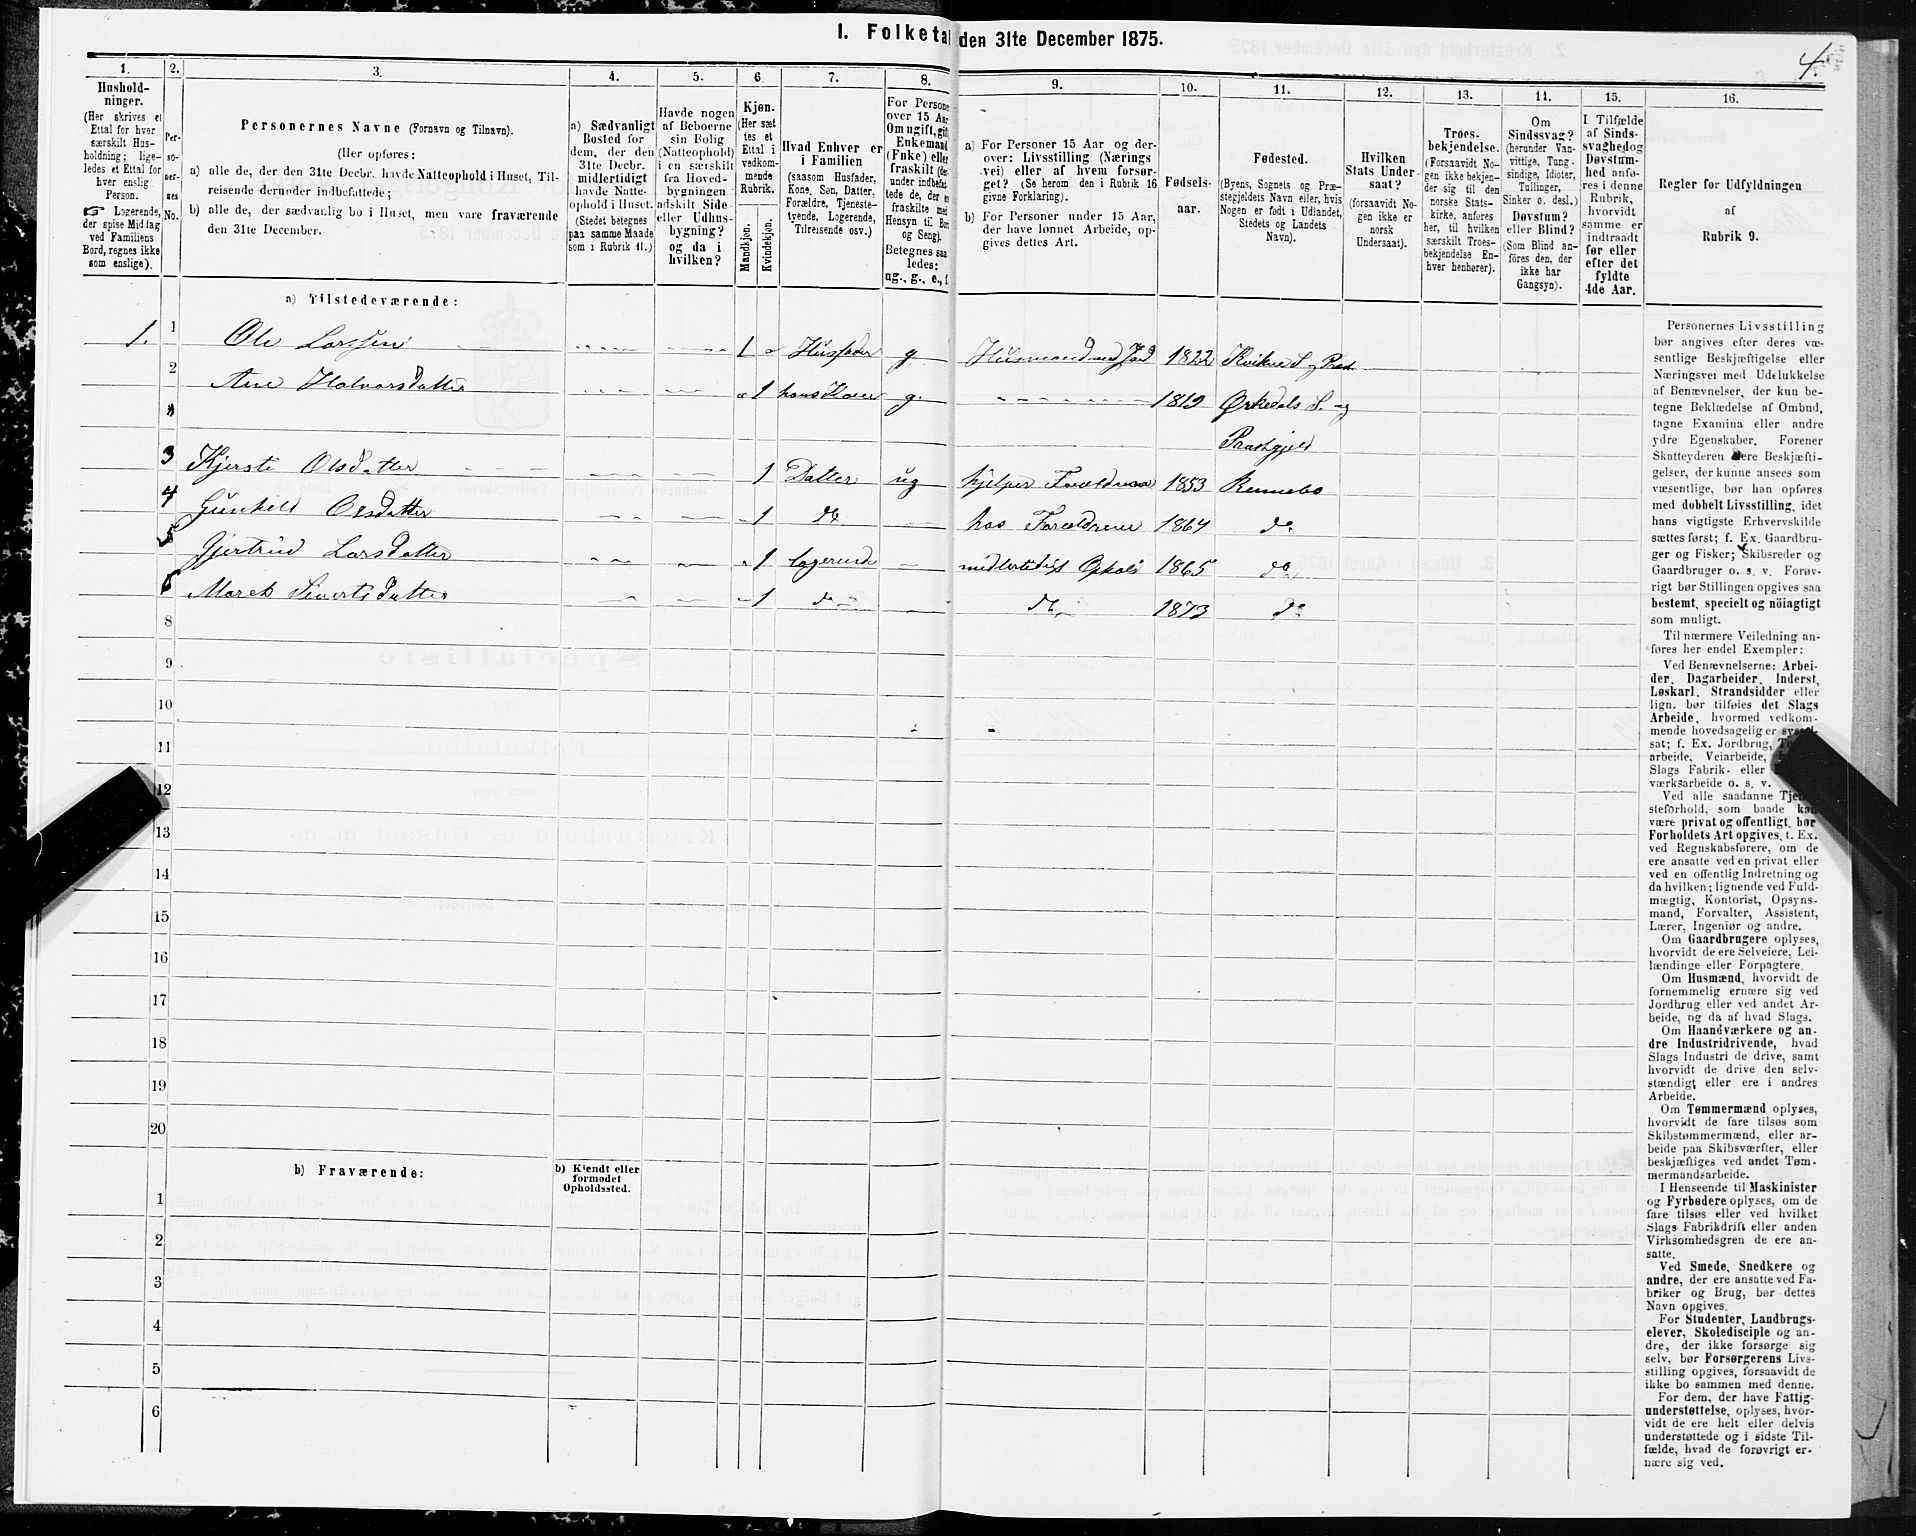 1. Folketal den 31te December 1875.
4.
1.
2.
3.
4.
5.
6.
7.
8.
9.
10.
11.
12.
13.
14.
15.
16.
Hushold-
ninger.
(Her skrives et
Ettal for hver
særskilt Hus-
holdning; lige-
ledes et Ettal for
hver enslig
Person.
☞ Logerende,
der spise Middag
ved Familiens
Bord, regnes ikke
som enslige).
Per-
so-
ner-
nes
No.
Personernes Navne (Fornavn og Tilnavn).
(Her opføres:
a) alle de, der den 31te Decbr. havde Natteophold i Huset, Til-
reisende derunder indbefattede;
b) alle de, der sædvanlig bo i Huset, men vare fraværende
den 31te December.
a) Sædvanligt
Bosted for
dem, der den
31te Decbr.
midlertidigt
havde Natte-
ophold i Huset.
(Stedet betegnes
paa samme Maade
som i Rubrik 11.)
Havde nogen
af Beboerne
sin Bolig
(Natteophold)
i en særskilt
fra Hoved-
bygningen
adskilt Side-
eller Udhus-
bygning?
og da i
hvilken?
Kjøn.
(Her sæt
tes et
Ettal i
vedkom-
mende
Rubrik.
Mandkjøn.
Kvindekjøn.
Hvad Enhver er
i Familien
(saasom Husfader,
Kone, Søn, Datter,
Forældre, Tjeneste-
tyende, Logerende,
Tilreisende osv.)
For Persone
over 15 Aar
Om ugift, gift
Enkemand
(Enke) eller
fraskilt (der
under indbefat
tede de, der er
fraskilte med
Hensyn til Bord
og Seng).
Betegnes saa
ledes:
ug., g., e., f.
a) For Personer 15 Aar og der-
over: Livsstilling (Nærings
vei) eller af hvem forsør-
get? (Se herom den i Rubrik 16
givne Forklaring).
b) For Personer under 15 Aar,
der have lønnet Arbeide, op-
gives dettes Art.
Fødsels-
aar.
Fødested.
(Byens, Sognets og Præ-
stegjeldets Navn eller, hvis
Nogen er født i Udlandet,
Stedets og Landets
Navn).
Hvilken
Stats Under-
saat?
(forsaavidt No-
gen ikke er
norsk
Undersaat).
Troes-
bekjendelse.
(Forsaavidt No-
gen ikke bekjen-
der sig til den
norske Stats-
kirke, anføres
her, til hvilken
særskilt Troes-
bekjendelse En-
hver henhører).
Om
Sindssvag?
(herunder Van-
vittige, Tung-
sindige, Idioter,
Tullinger,
Sinker o. desl.)
Døvstum?
eller Blind?
(Som Blind an-
føres den, der
ikke har
Gangsyn).
I Tilfælde
af Sinds-
svaghed og
Døvstum-
hed anfø-
res i denne
Rubrik,
hvorvidt
samme er
indtraadt
før eller
efter det
fyldte
4de Aar.
Regler for Udfyldningen
af
Rubrik 9.
a) Tilstedeværende:
1. 1 Ole Larssen 1 Husfader g Husmand med Jord 1822 Kvikne S. og Præst.
2 Ane Halvorsdatter 1 hans Kone g. 1819 Ørkedals S. og
Præstegjeld
3 Kjersti Olsdatter 1 Datter ug hjelper Forældrene 1853 Rennebo
4 Gunhild Olsdatter 1 do hos Forældrene 1864 do
5 Gjertrud Larsdatter 1 logerende midlertidigt Ophold 1865 do
6 Marek Sivertsdatter 1 do do 1873 do
8
9
10
11
12
13
14
15
16
17
18
19
20
b) Fraværende:
b) Kjendt eller
formodet
Opholdssted.
1
2
3
4
5
6
Personernes Livsstilling
bør angives efter deres væ-
sentlige Beskjæftigelse eller
Næringsvei med Udelukkelse
af Benævnelser, der kun be-
tegne Beklædelse af Ombud,
tagne Examina eller andre
ydre Egenskaber. Forener
Skatteyderen flere Beskjæfti-
gelser, der kunne ansees som
væsentlige, bør han opføres
med dobbelt Livsstilling, idet
hans vigtigste Erhvervskilde
sættes først; f. Ex. Gaardbru-
ger og Fisker; Skibsreder og
Gaardbruger o. s. v. Forøv-
rigt bør Stillingen opgives saa
bestemt, specielt og nøiagtigt
som muligt.
Til nærmere Veiledning an-
føres her endel Exempler:
Ved Benævnelserne: Arbei-
der, Dagarbeider, Inderst,
Løskarl, Strandsidder eller
lign. bør tilføies det Slags
Arbeide, hvormed vedkom-
mende hovedsagelig er syssel-
sat; f. Ex. Jordbrug,
arbeide, Veiarbeide,
Slags Fabrik- eller
værksarbeide o. s. v.
Ved alle saadanne Tjene-
steforhold, som baade kan
være privat og offentligt, bør
Forholdets Art opgives, t. Ex.
ved Regnskabsførere, om de
ere ansatte ved en privat eller
ved en offentlig Indretning og
da hvilken; lignende ved Fuld-
mægtig, Kontorist, Opsyns-
mand, Forvalter, Assistent,
Lærer, Ingeniør og andre.
Om Gaardbrugere oplyses,
hvorvidt de ere Selveiere, Lei-
lændinge eller Forpagtere.
Om Husmænd, hvorvidt de
fornemmelig ernære sig ved
Jordbrug eller ved andet Ar-
beide, og da af hvad Slags.
Om Haandværkere og an-
dre Industridrivende, hvad
Slags Industri de drive, samt
hvorvidt de drive den selv-
stændigt eller ere i andres
Arbeide.
Om Tømmermænd oplyses,
hvorvidt de fare tilsøs som
Skibstømmermænd, eller ar-
beide paa Skibsværfter, eller
beskjæftiges ved andet Tøm-
mermandsarbeide.
I Henseende til Maskinister
og Fyrbødere oplyses, om de
fare tilsøs eller ved hvilket
Slags Fabrikdrift eller anden
Virksomhedsgren de ere an-
satte.
Ved Smede, Snedkere og
andre, der ere ansatte ved Fa-
briker og Brug, bør dettes
Navn opgives.
For Studenter, Landbrugs-
elever, Skoledisciple og an-
dre, der ikke forsørge sig
selv, bør Forsørgerens Livs-
stilling opgives, forsaavidt de
ikke bo sammen med denne.
For dem, der have Fattig-
understøttelse, oplyses, hvor-
vidt de ere helt eller delvis
understøttede og i sidste Til-
fælde, hvad de forøvrigt er-
nære sig ved.